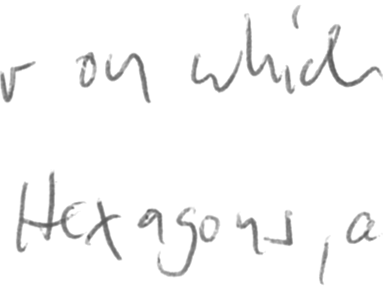 on which
Hexagons, a